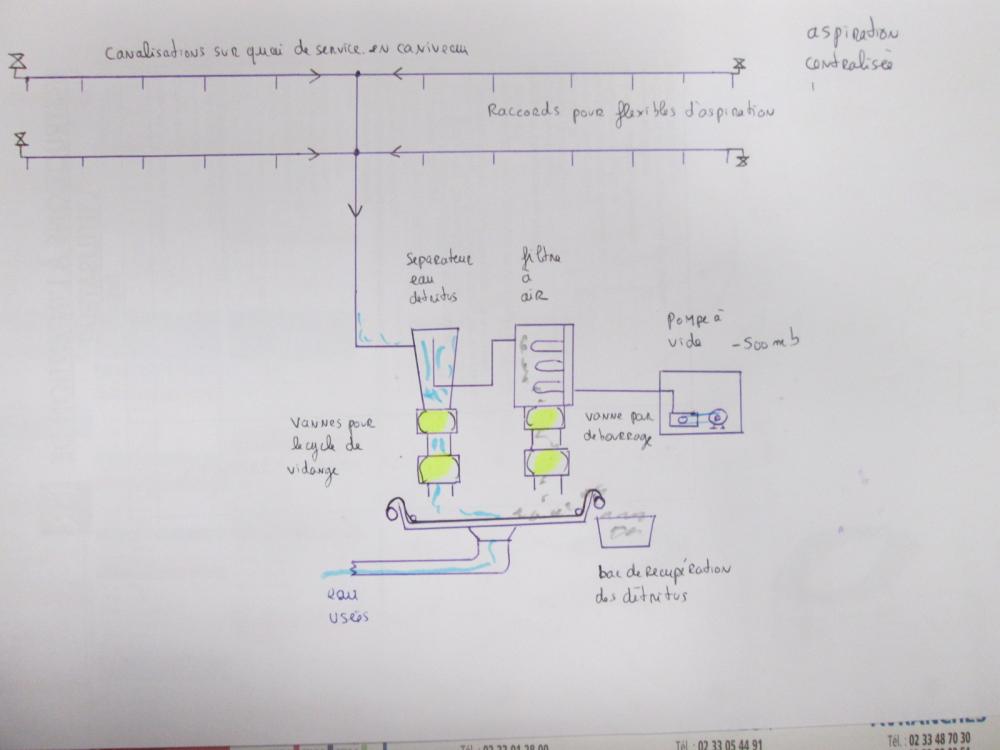 aspiration
centralisée
Canalisations sur quai de service en caniveau
Raccords pour flexibles d'aspiration
Séparateur
eau
détritus
filtre
à
air
Pompe à
vide -500 mb
Vannes pour
le cycle de
vidange
vanne par
débourrage
bac de récupération
des détritus
eau
usées
AVRANCHES
Tél. : 02 33 48 70 30
Tél. : 02 33 05 44 91